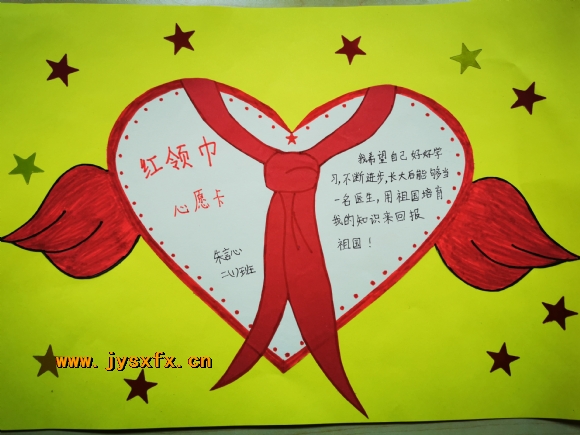 红领巾
心愿卡
朱言心
二(1)班
我希望自己好好学
习,不断进步,长大后能够当
一名医生,用祖国培育
我的知识来回报
祖国!
www.jysxfx.cn